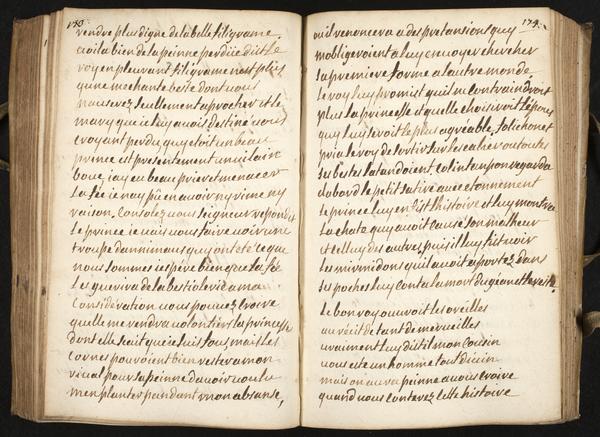 173.
vendre plus digne de la belle filigrame
voila bien de la peinne perdüe dit le
roy en pleurant filigrame n'est plus
qune mechante beste dont vous
nauserez seullement aprocher et le
mary que ie luy avois destiné vous
croyant perdu quy etoit un beau
prince est presentement un vilain
bouc, iay eu beau prier et menacer
la fée ie nay pû en avoir ny rime ny
raison. Consolez vous seigneur respondit
le prince ie vais vous faire voir une
troupe danimaux quy ont eté ce que
nous sommes iespere bien que la fée
les guerira de la bestiolerie a ma
Consideration vous pouvez croire
quelle me rendra volontiers la princesse
dont elle scait que ie suis fous mais les
Cornes pouroient bien rester a mon
rival pour sa peinne davoir voulu
men planter pandant mon absanse,
174.
ou il renoncera a des pretansions quy
mobligeroient a luy envoyer chercher
sa premiere forme a lautre monde
le roy luy promist quil ne contraindroit
plus la princesse et quelle choisiroit lepous
quy luy seroit le plus agréable, folichonet
pria le roy de sortir sur les cahier ou toutes
ses bestes latandoient, Colintanpon regarda
dabord le petit satire avec etonnement
le prince luy en dist lhistoire et luy montra
la chate quy avoit causé son malheur
et celluy des autres, puis il luy fist voir
les mirmidons quil avoit aportez dans
ses poches luy conta la mort du géant et le reste.
Le bon roy ouvroit les oreilles
au récit de tant de merveilles
vraiment luy dist il mon Cousin
vous ete un homme tout divin
mais on aura peinne a vous croire
quand vous conterez cette histoire